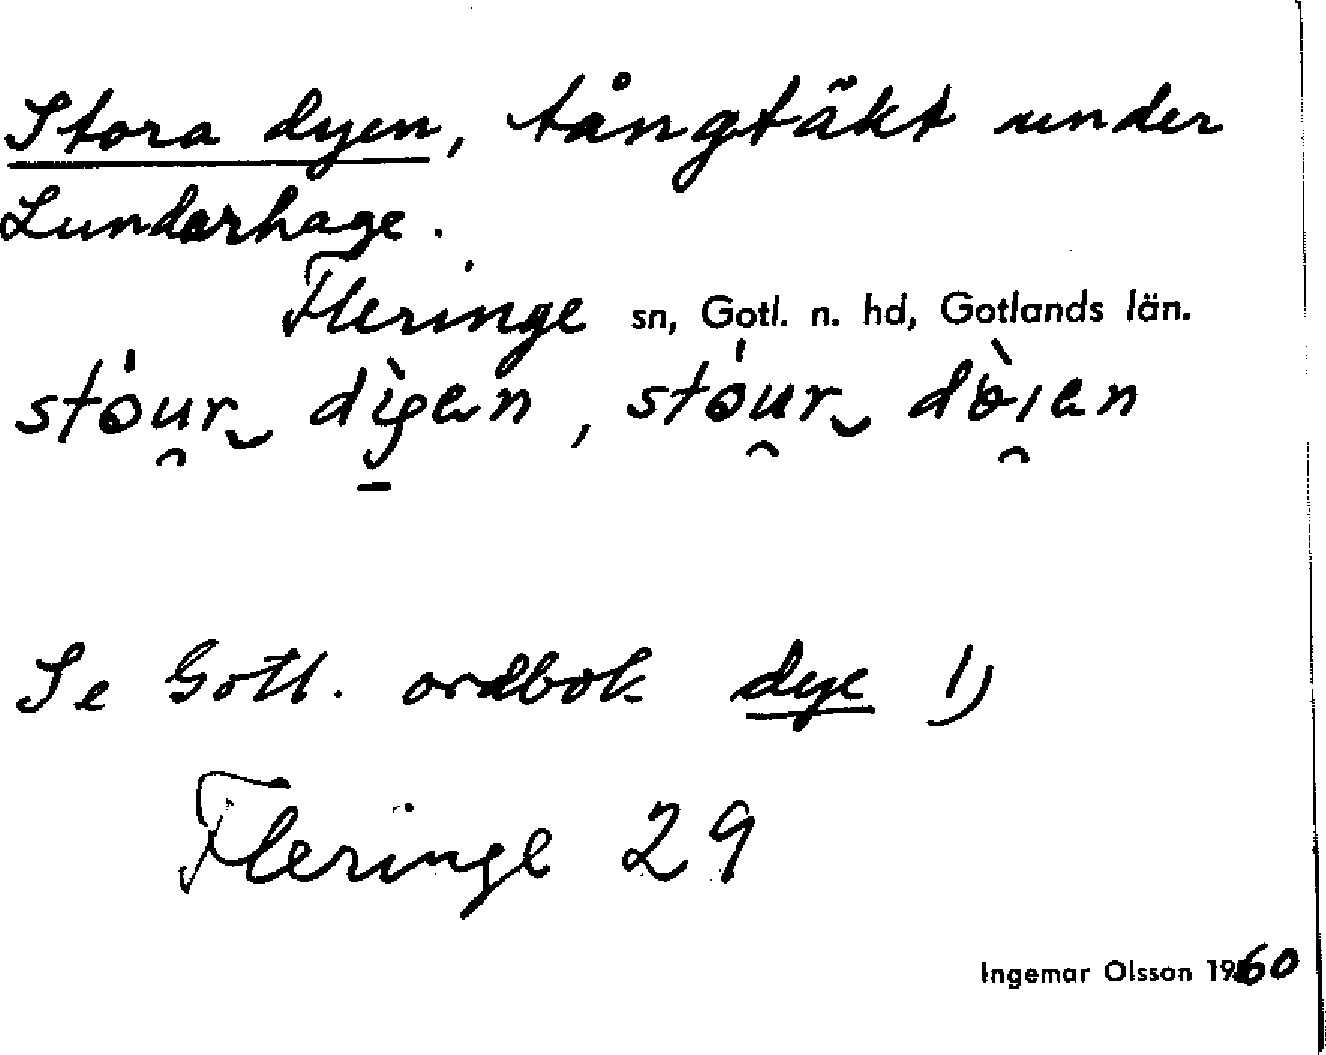 Stora dyen, tångtäkt under
Lundarhage.
Fleringe sn, Gotl. n. hd, Gotlands län.
stóu̯r‿ dìgen, stóu̯r‿ dɵ̀i̯en
Se Gotl. ordbok dye 1)
Fleringe 29
Ingemar Olsson 1960